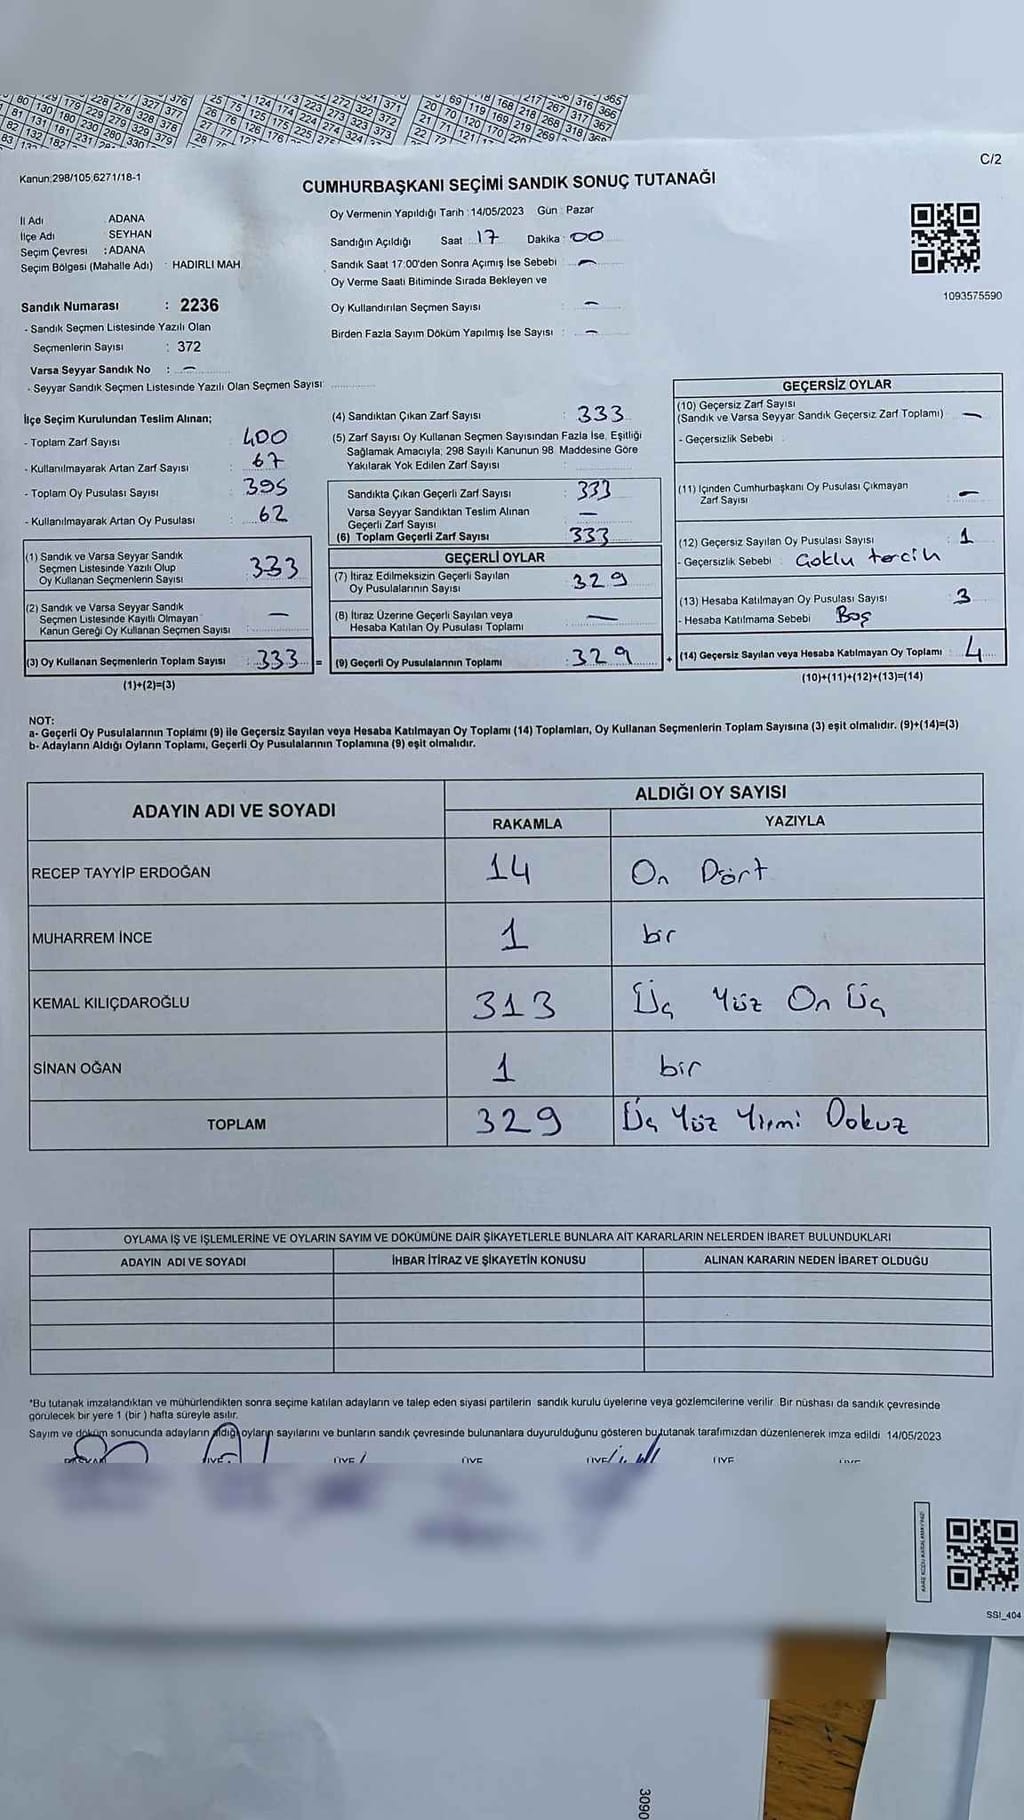 C/2
Kanun:298/105,6271/18-1
CUMHURBAŞKANI SEÇİMİ SANDIK SONUÇ TUTANAĞI
İl Adı ADANA
İlçe Adı SEYHAN
Seçim Çevresi : ADANA
Seçim Bölgesi (Mahalle Adı) : HADIRLI MAH.
Oy Vermenin Yapıldığı Tarih : 14/05/2023 Gün : Pazar
Sandığın Açıldığı Saat 17 Dakika : 00
Sandık Saat 17:00'den Sonra Açımış İse Sebebi : -
Oy Verme Saati Bitiminde Sırada Bekleyen ve
Oy Kullandırılan Seçmen Sayısı : -
Birden Fazla Sayım Döküm Yapılmış İse Sayısı : -
1093575590
Sandık Numarası : 2236
- Sandık Seçmen Listesinde Yazılı Olan
Seçmenlerin Sayısı : 372
Varsa Seyyar Sandık No : -
- Seyyar Sandık Seçmen Listesinde Yazılı Olan Seçmen Sayısı
İlçe Seçim Kurulundan Teslim Alınan;
- Toplam Zarf Sayısı : 400
- Kullanılmayarak Artan Zarf Sayısı : 67
- Toplam Oy Pusulası Sayısı : 395
- Kullanılmayarak Artan Oy Pusulası : 62
(1) Sandık ve Varsa Seyyar Sandık
Seçmen Listesinde Yazılı Olup
Oy Kullanan Seçmenlerin Sayısı 333
(2) Sandık ve Varsa Seyyar Sandık
Seçmen Listesinde Kayıtlı Olmayan
Kanun Gereği Oy Kullanan Seçmen Sayısı -
(3) Oy Kullanan Seçmenlerin Toplam Sayısı : 333 =
(1)+(2)=(3)
(4) Sandıktan Çıkan Zarf Sayısı : 333
(5) Zarf Sayısı Oy Kullanan Seçmen Sayısından Fazla İse, Eşitliği
Sağlamak Amacıyla; 298 Sayılı Kanunun 98. Maddesine Göre
Yakılarak Yok Edilen Zarf Sayısı :
Sandıkta Çıkan Geçerli Zarf Sayısı : 333
Varsa Seyyar Sandıktan Teslim Alınan
Geçerli Zarf Sayısı -
(6) Toplam Geçerli Zarf Sayısı 333
GEÇERLİ OYLAR
(7) İtiraz Edilmeksizin Geçerli Sayılan
Oy Pusulalarının Sayısı 329
(8) İtiraz Üzerine Geçerli Sayılan veya
Hesaba Katılan Oy Pusulası Toplamı -
(9) Geçerli Oy Pusulalarının Toplamı : 329 +
GEÇERSİZ OYLAR
(10) Geçersiz Zarf Sayısı
(Sandık ve Varsa Seyyar Sandık Geçersiz Zarf Toplamı) -
- Geçersizlik Sebebi
(11) İçinden Cumhurbaşkanı Oy Pusulası Çıkmayan
Zarf Sayısı -
(12) Geçersiz Sayılan Oy Pusulası Sayısı : 1
- Geçersizlik Sebebi : Çoklu tercih
(13) Hesaba Katılmayan Oy Pusulası Sayısı : 3
- Hesaba Katılmama Sebebi : Boş
(14) Geçersiz Sayılan veya Hesaba Katılmayan Oy Toplamı 4
(10)+(11)+(12)+(13)=(14)
NOT:
a- Geçerli Oy Pusulalarının Toplamı (9) ile Geçersiz Sayılan veya Hesaba Katılmayan Oy Toplamı (14) Toplamları, Oy Kullanan Seçmenlerin Toplam Sayısına (3) eşit olmalıdır. (9)+(14)=(3)
b- Adayların Aldığı Oyların Toplamı, Geçerli Oy Pusulalarının Toplamına (9) eşit olmalıdır.
ADAYIN ADI VE SOYADI ALDIĞI OY SAYISI
RAKAMLA YAZIYLA
RECEP TAYYİP ERDOĞAN 14 On Dört
MUHARREM İNCE 1 bir
KEMAL KILIÇDAROĞLU 313 Üç Yüz On Üç
SİNAN OĞAN 1 bir
TOPLAM 329 Üç Yüz Yirmi Dokuz
OYLAMA İŞ VE İŞLEMLERİNE VE OYLARIN SAYIM VE DÖKÜMÜNE DAİR ŞİKAYETLERLE BUNLARA AİT KARARLARIN NELERDEN İBARET BULUNDUKLARI
ADAYIN ADI VE SOYADI İHBAR İTİRAZ VE ŞİKAYETİN KONUSU ALINAN KARARIN NEDEN İBARET OLDUĞU
*Bu tutanak imzalandıktan ve mühürlendikten sonra seçime katılan adayların ve talep eden siyasi partilerin sandık kurulu üyelerine veya gözlemcilerine verilir. Bir nüshası da sandık çevresinde
görülecek bir yere 1 (bir) hafta süreyle asılır.
Sayım ve döküm sonucunda adayların aldığı oyların sayılarını ve bunların sandık çevresinde bulunanlara duyurulduğunu gösteren bu tutanak tarafımızdan düzenlenerek imza edildi 14/05/2023
BAŞKAN ÜYE ÜYE ÜYE ÜYE ÜYE ÜYE
SSI_404
3090